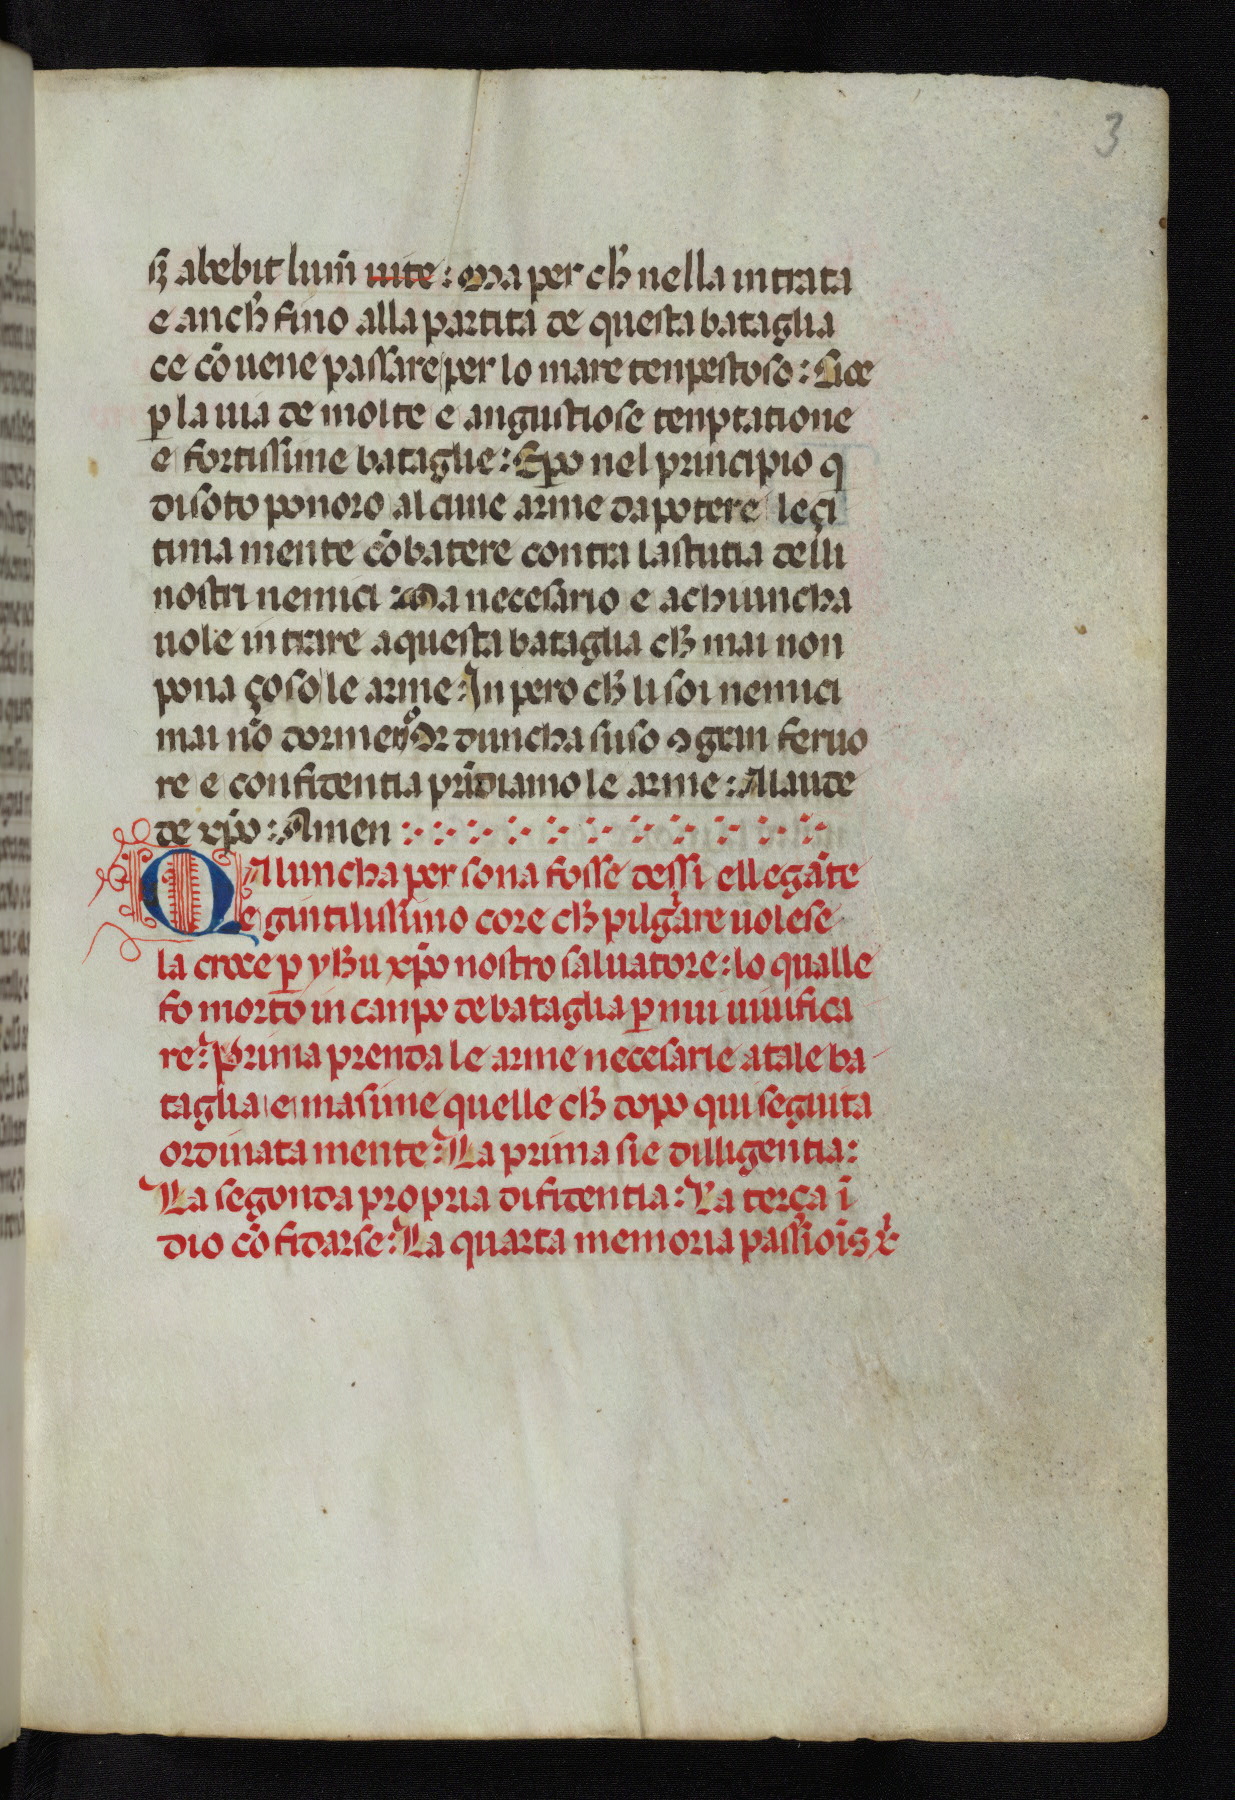 3
sꝫ abebit lum̄ uite : Ma per cħ nella intrata
e ancħ fino alla partita de questa bataglia
ce cōuene passare per lo mare tenpestoso : Zioe
ꝑ la uia de molte e angustiose tenptatione
e fortissime bataglie : Epo nel principio q
disoto ponoro alcune arme da potere leçi
tima mente cōbatere contra lastutia delli
nostri nemici : Ma necesario e a chiuncha
uole intrare a questa bataglia cħ mai non
pona çoso le arme : In pero cħ li soi nemici
mai nō dormeno Or duncha suso ꝯ gran feruo
re e confidentia prēdiamo le arme : A laude
de xp̄o : Amen
Qaluncha persona fosse dessi ellegāte
e gintilissimo core cħ pilgrare uolese
la croce ꝑ yħu xp̄o nostro saluatore : lo qualle
fo morto in canpo de bataglia ꝑ nui uiuifica
re : Prima prenda le arme necesarie a tale ba
taglia e masime quelle cħ dopo qui seguita
ordinata mente : La prima sie dilligentia :
La segonda propria difidentia : La terça ī
dio cō fidarse : La quarta memoria passiōis x̄